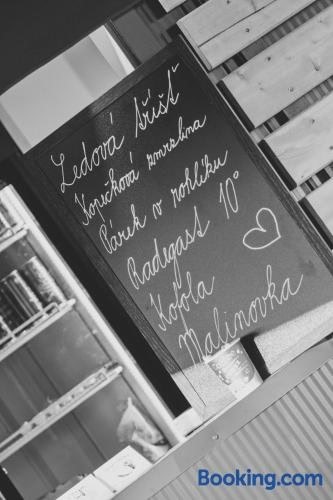 Ledová tříšť
Kopečková zmrzlina
Párek v rohlíku
Radegast 10°
Kofola
Malinovka
Booking.com